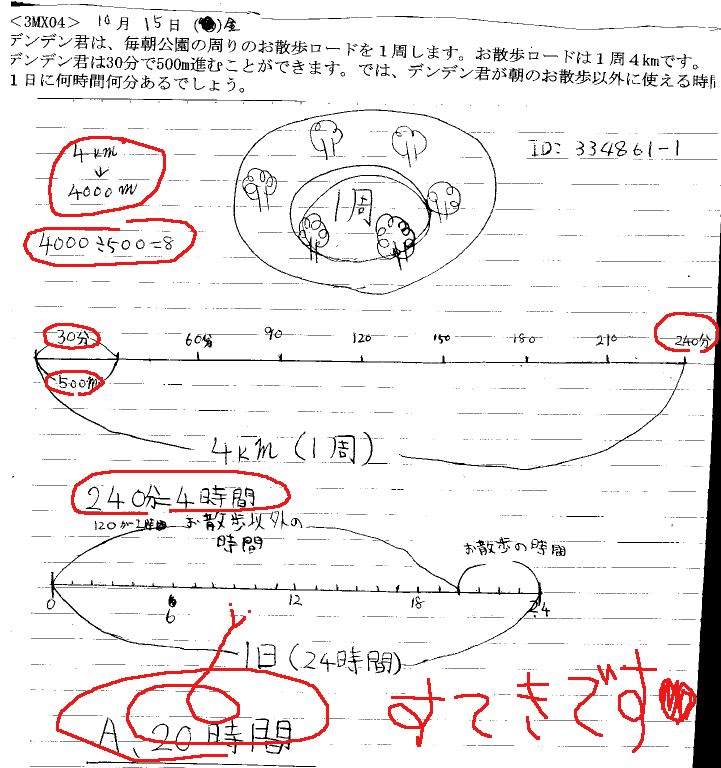 <3MX04> 10月 15日 ( )金
デンデン君は、毎朝公園の周りのお散歩ロードを１周します。お散歩ロードは１周４kmです。
デンデン君は30分で500m進むことができます。では、デンデン君が朝のお散歩以外に使える時
１日に何時間何分あるでしょう。
4km
↓
4000m
ID: 334861-1
1周
4000÷500=8
30分 60分 90 120 150 180 210 240分
500m
4km(1周)
240分=4時間
120が2個
お散歩以外の
時間
お散歩の時間
0 6 12 18 24
6
1日(24時間)
A、20時間
すてきです